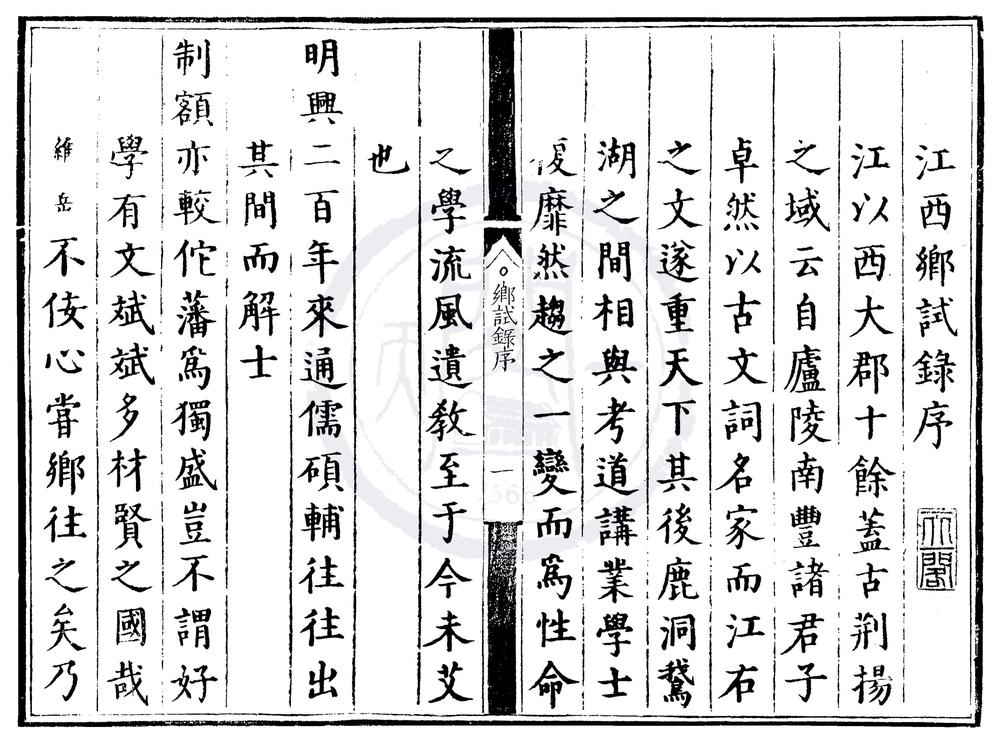 江西鄉試錄序
江以西大郡十餘蓋古荆揚
之域云自廬陵南豐諸君子
卓然以古文詞名家而江右
之文遂重天下其後鹿洞鵞
湖之間相與考道講業學士
復靡然趨之一變而爲性命
鄉試錄序
一
之學流風遺敎至于今未艾
也
明興二百年來通儒碩輔往往出
其間而解士
制額亦較佗藩爲獨盛豈不謂好
學有文斌斌多材賢之國哉
維岳不佞心嘗鄉往之矣乃